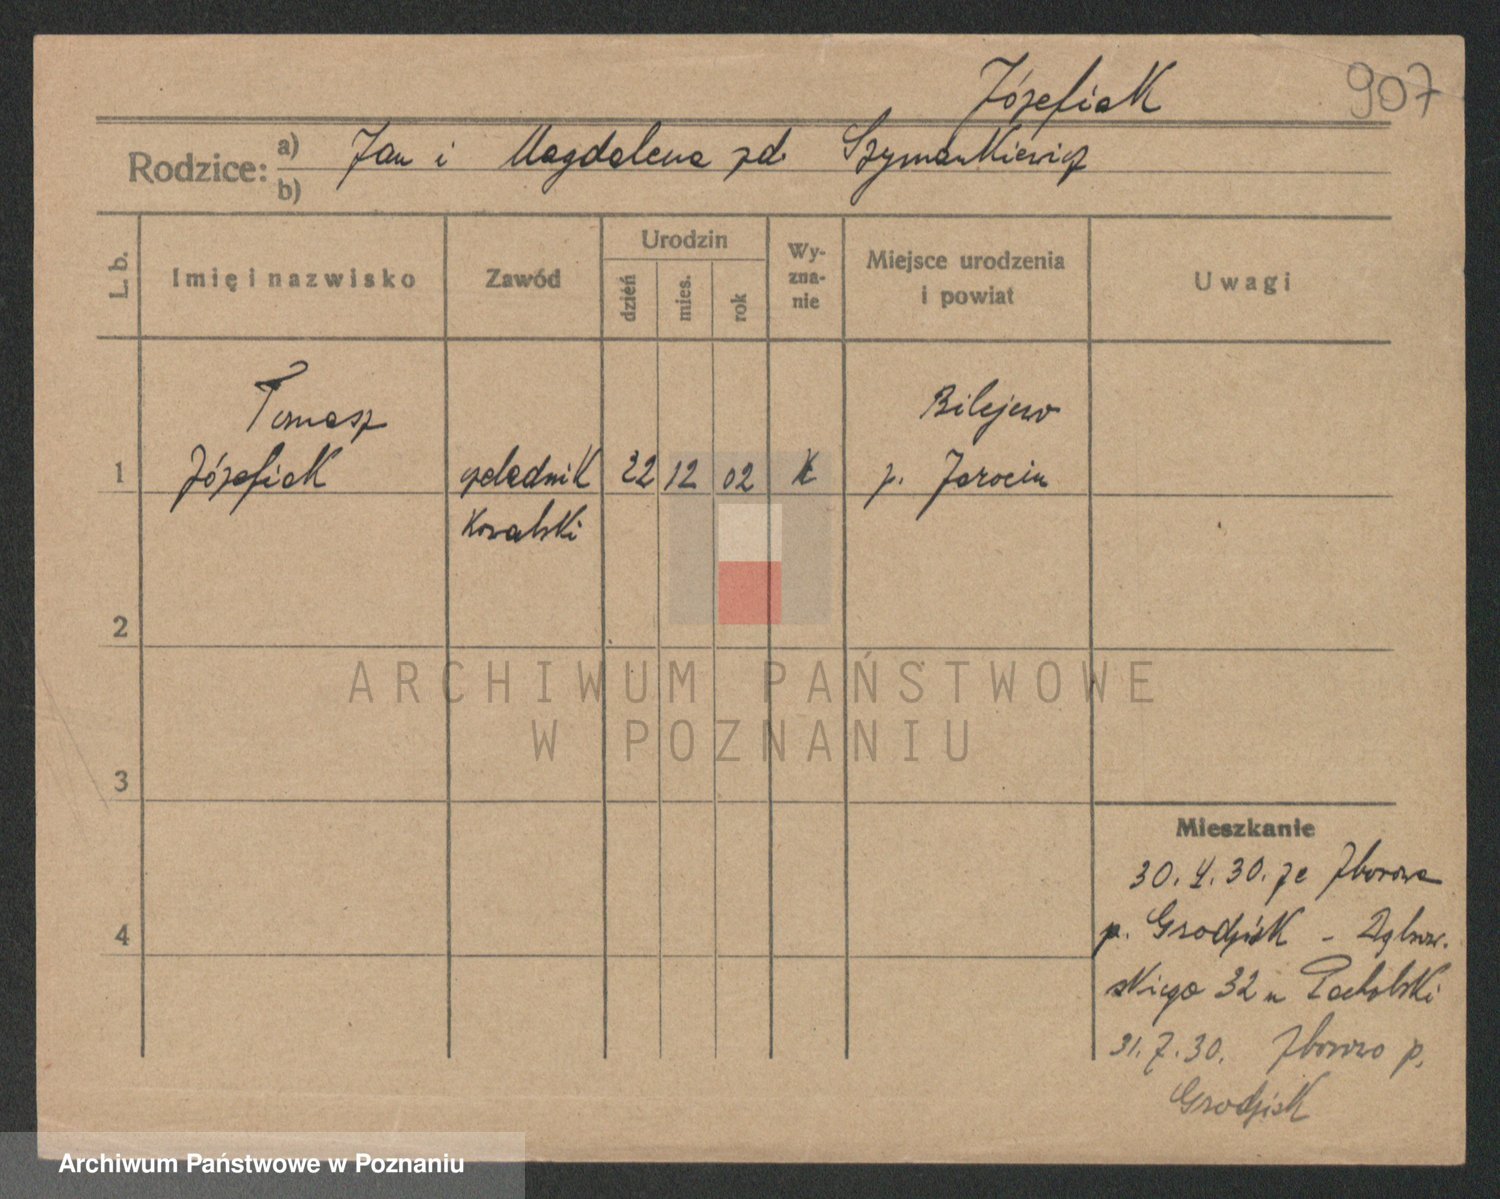 Józefiak
907
Rodzice: a) Jan i Magdalena zd. Szymankiewicz
b)
L. b.
Imię i nazwisko
Zawód
Urodzin
dzień
mies.
rok
Wy-
zna-
nie
Miejsce urodzenia
i powiat
Uwagi
Tomasz
Bilejewo
1 Józefiak czeladnik 22 12 02 k p. Jarocin
kowalski
2
ARCHIWUM PAŃSTWOWE
W POZNANIU
3
Mieszkanie
30. 4. 30. ze Zborowa
p. Grodzisk -
4
skiego 32 u Pacholski
31. 7. 30. Zborowo p.
Grodzisk
Archiwum Państwowe w Poznaniu